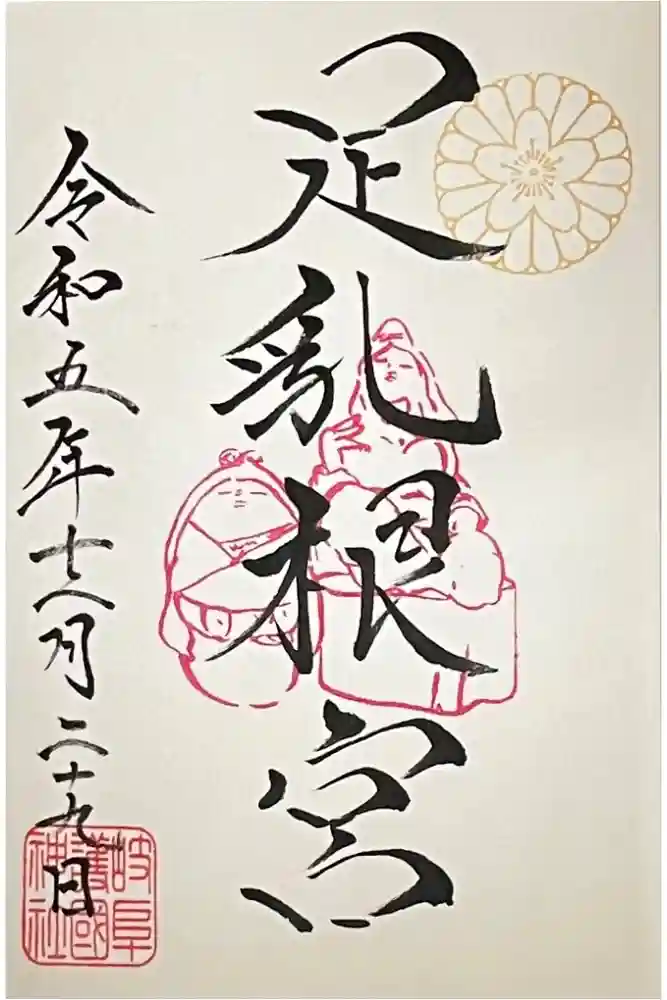 足乳根宮
令和五年 月二十九日
岐阜
護國
神社